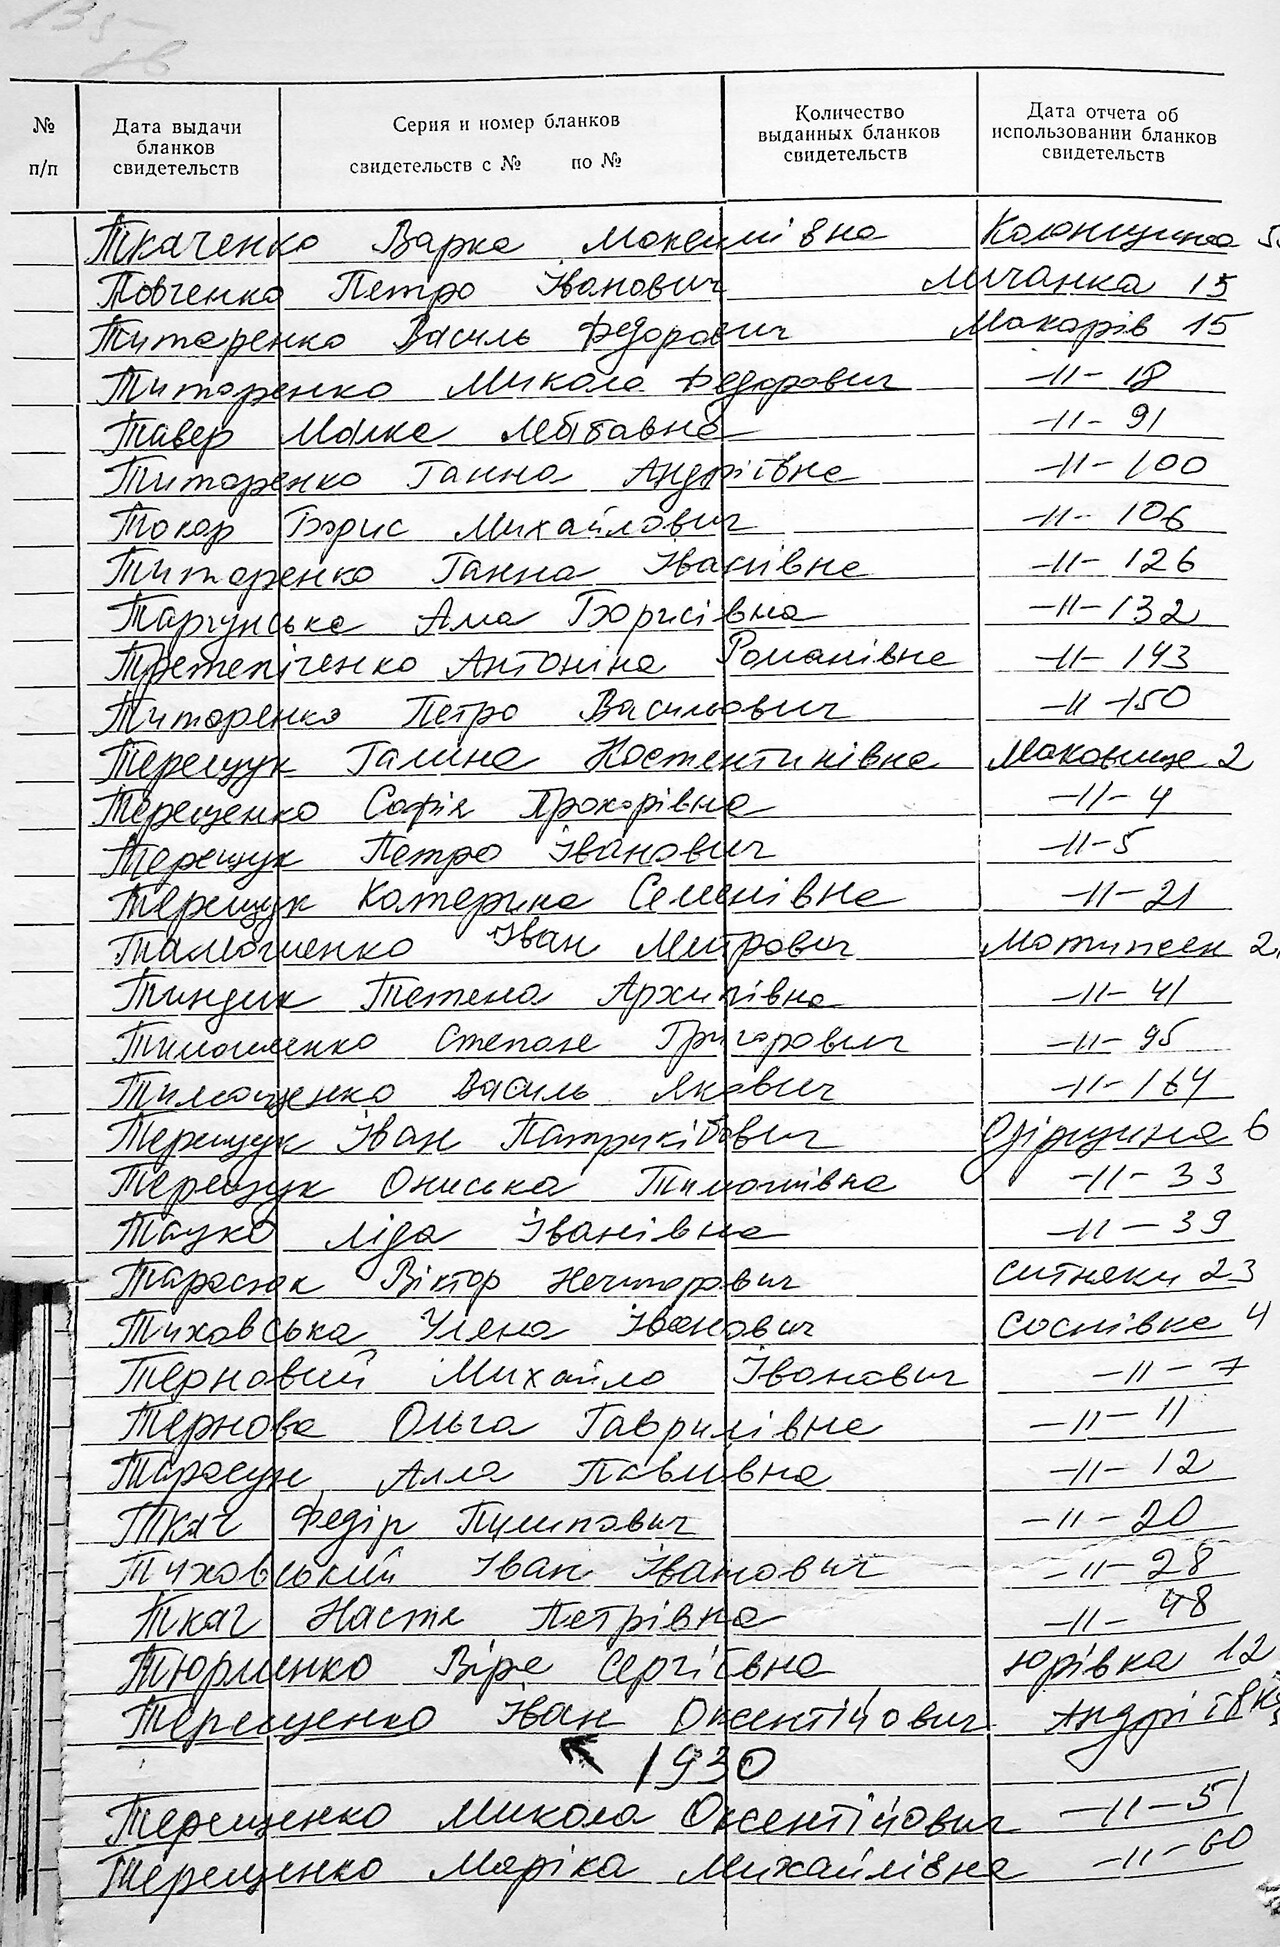 135
№ п/п
Дата выдачи бланков свидетельств
Серия и номер бланков свидетельств с № по №
Количество выданных бланков свидетельств
Дата отчета об использовании бланков свидетельств
Ткаченко Варка Максимівна Колонщина
Товченко Петро Іванович Личанка 15
Титаренко Василь Федорович Макарів 15
Титаренко Микола Федорович -11- 18
Тавер Малка -11- 91
Титаренко Ганна Андріївна -11- 100
Токар Борис Михайлович -11- 106
Титаренко Ганна Іванівна -11- 126
Таргунська Алла Борисівна -11- 132
Антоніна Романівна -11- 143
Титаренко Петро Васильович -11- 150
Терещук Галина Костентинівна Маковище 2
Терещенко Софія Прохорівна -11- 4
Терещук Петро Іванович -11- 5
Терещук Катерина Семенівна -11- 21
Іван Митрович Мотижен
Тиндик Тетена Архипівна -11- 41
Тимошенко Степан Григорович -11- 95
Тимощенко Василь Якович -11- 164
Терещук Іван Патрикійович 6
Терещук Ониська Тимошівна -11- 33
Ліда Іванівна -11- 39
Тарасюк Віктор Ничипорович Ситняки 23
Тиховська Уляна Іванович Соснівка 4
Терновий Михайло Іванович -11- 7
Тернова Ольга Гаврилівна -11- 11
Тарасун Алла Павлівна -11- 12
Ткач Федір Пилипович -11- 20
Тиховський Іван Іванович -11- 28
Ткач Настя Петрівна -11- 48
Тюрменко Віра Сергіївна Юрівка 12
Терещенко Іван Оксентійович
1930
Терещенко Микола Оксентійович -11- 51
Терещенко Маріка Михайлівна -11- 60